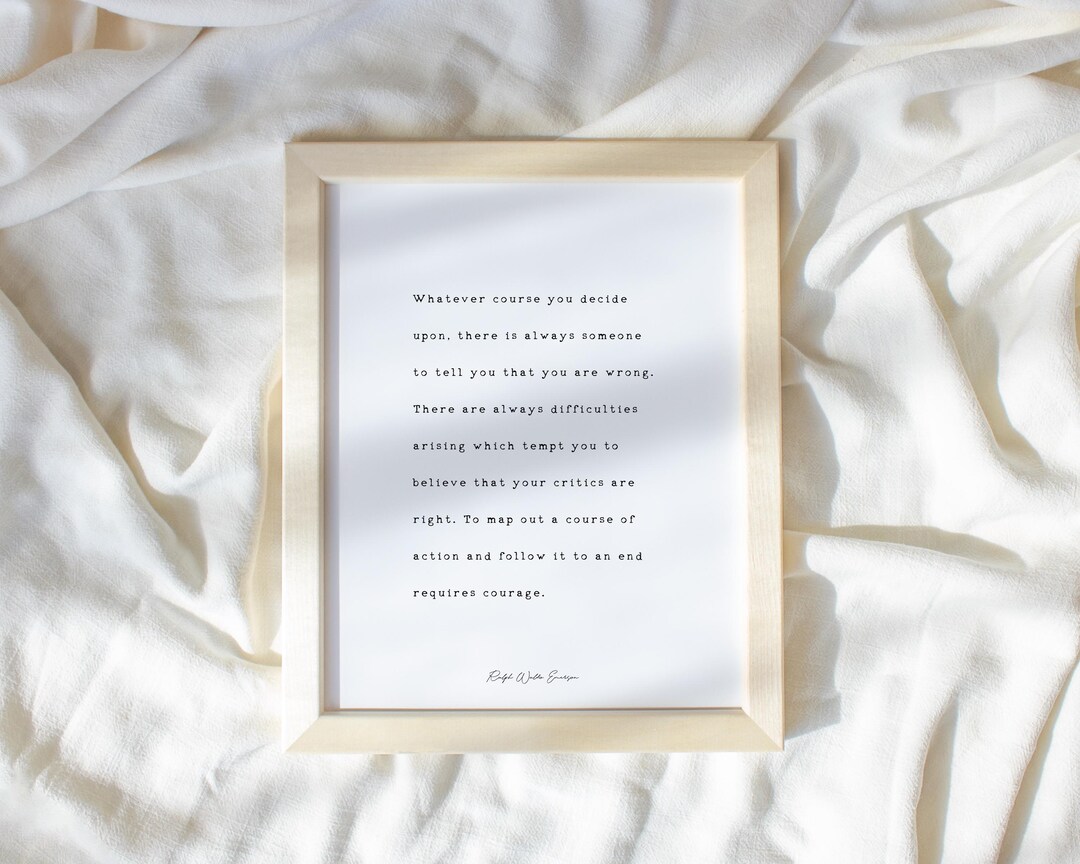 Whatever course you decide
upon, there is always someone
to tell you that you are wrong.
There are always difficulties
arising which tempt you to
believe that your critics are
right. To map out a course of
action and follow it to an end
requires courage.
Ralph Waldo Emerson